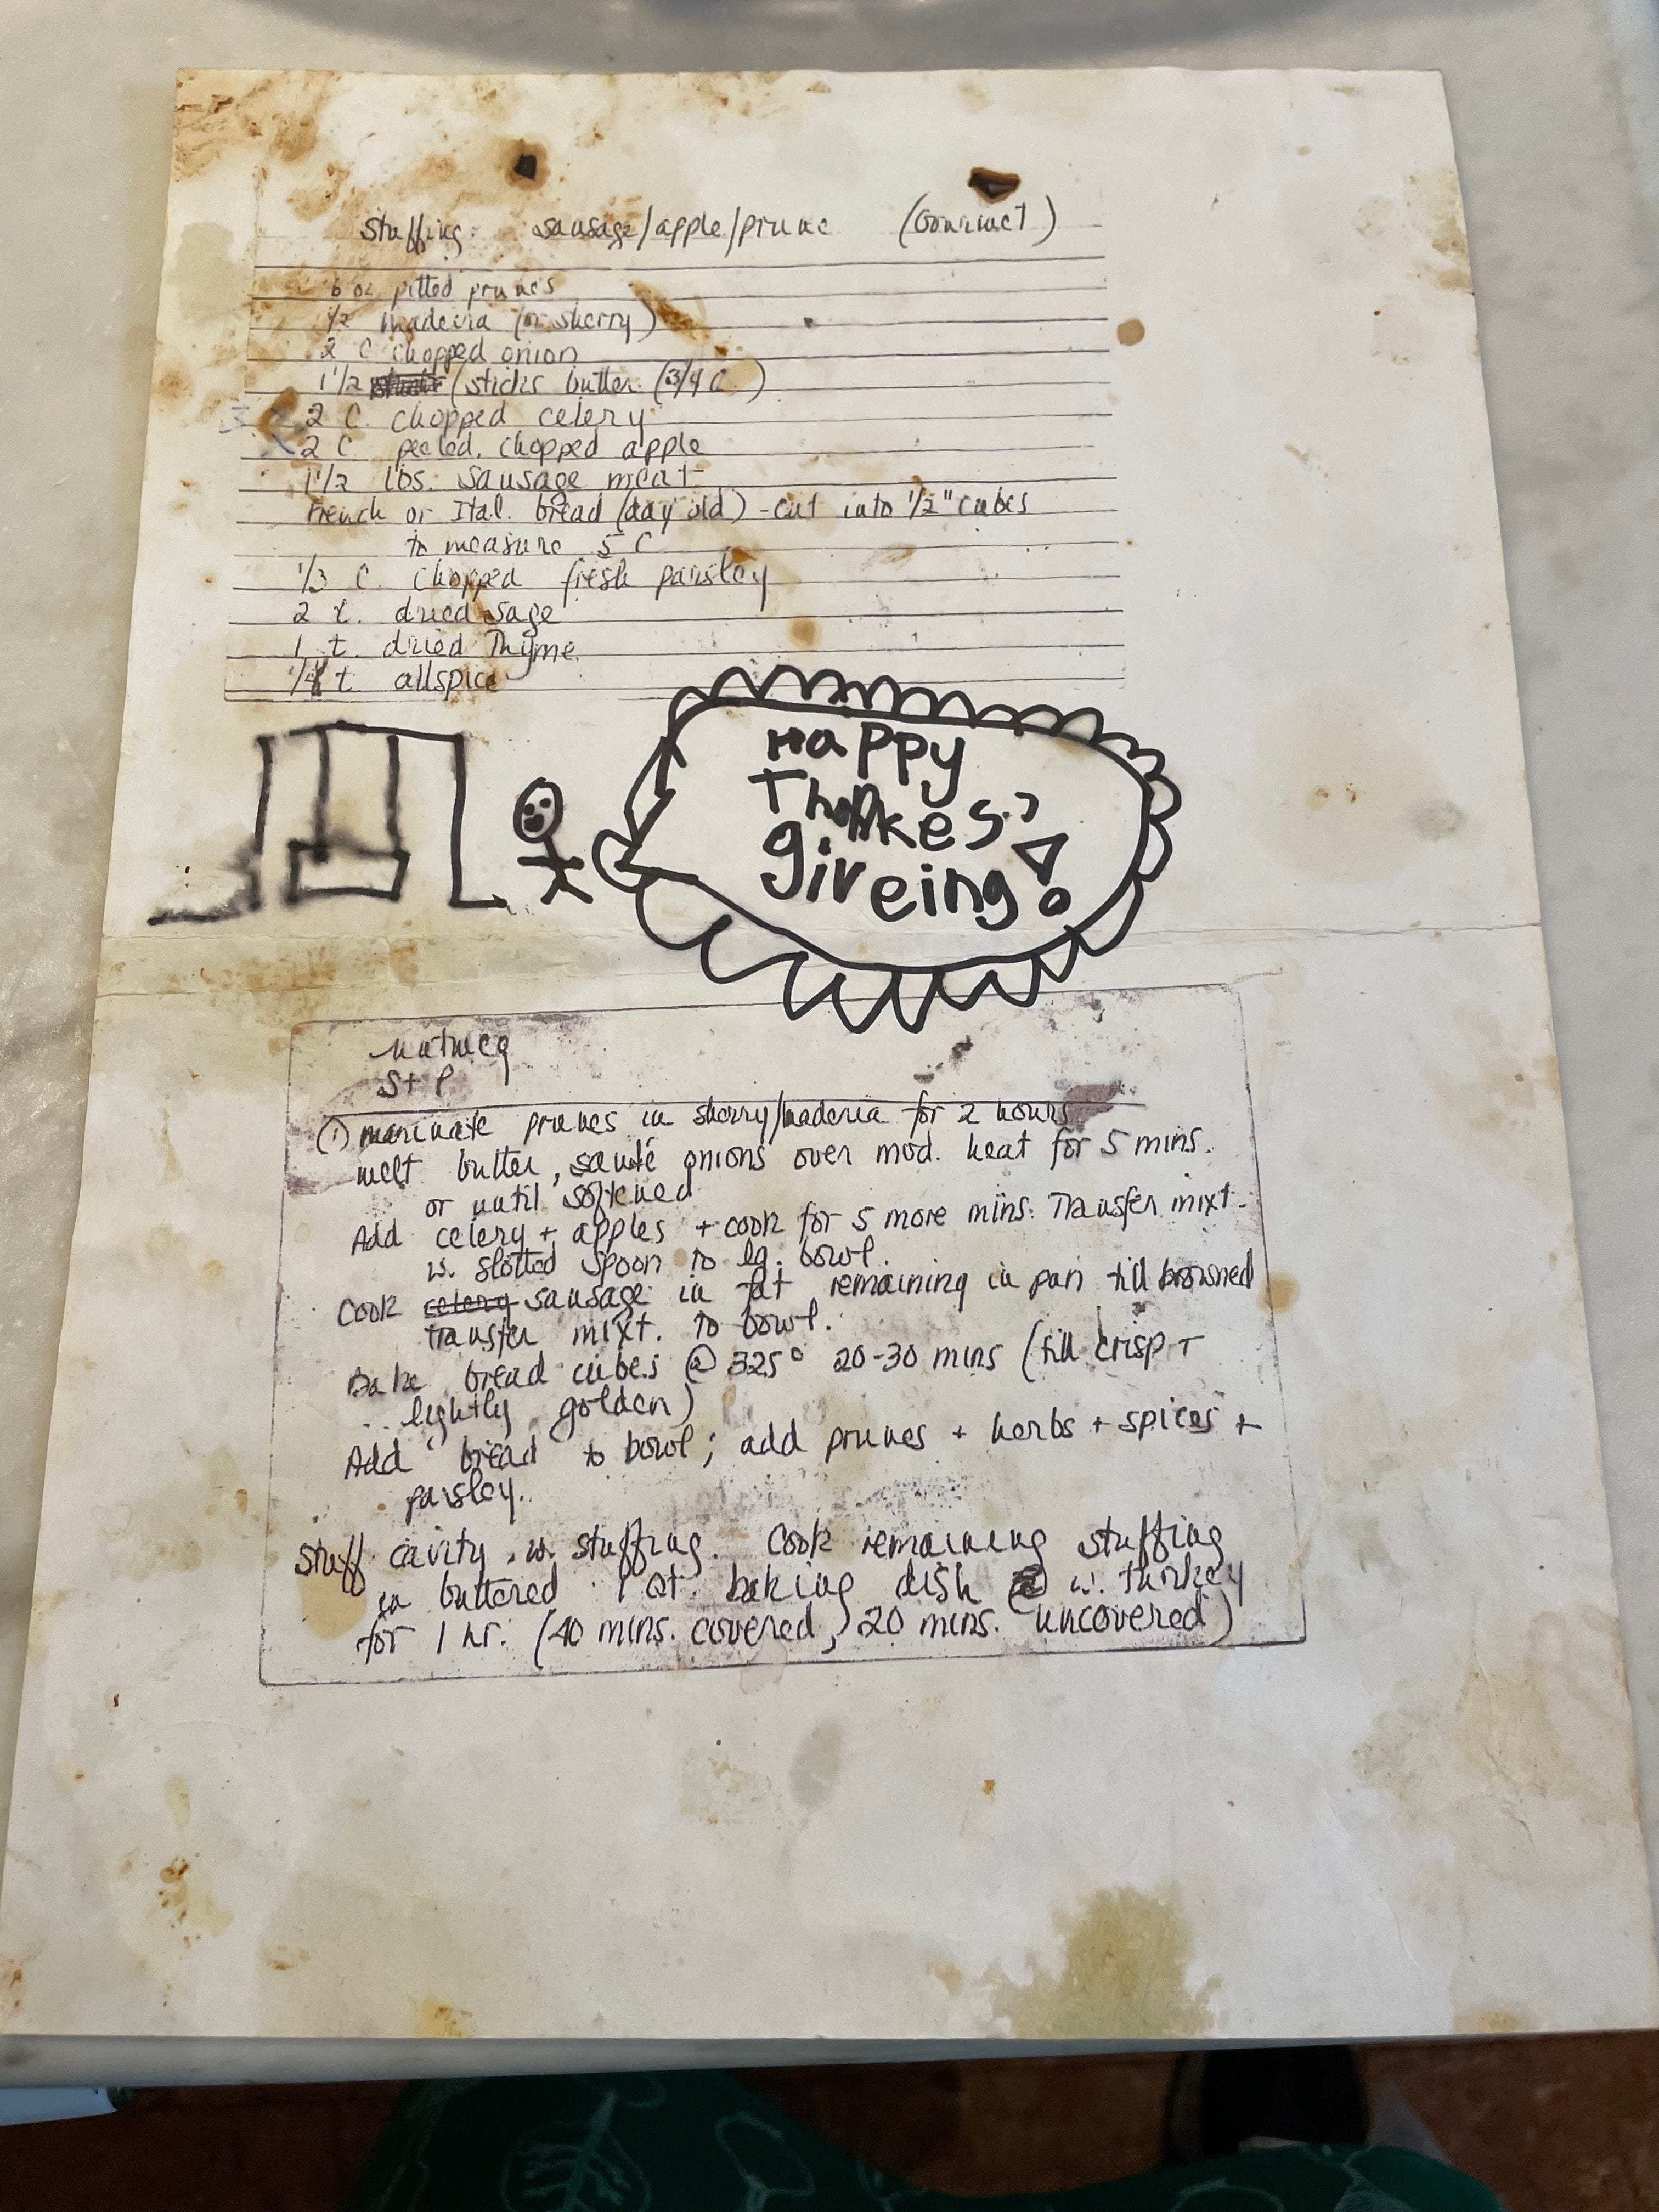 Stuffing: sausage/apple/prune (Gourmet)
6 oz. pitted prunes
1/2 madeira (or sherry)
2 C chopped onion
1 1/2 (sticks butter (3/4 C)
3 2 C. chopped celery
2 C peeled, chopped apple
1 1/2 lbs. sausage meat
French or Ital. bread (day old) - cut into 1/2" cubes
to measure 5 C
1/3 C. chopped fresh parsley
2 t. dried sage
1 t. dried Thyme
1/4 t. allspice
Happy
Thankes
giveing!
nutmeg
S + P
(1) marinate prunes in sherry/maderia for 2 hours
melt butter, sauté onions over mod. heat for 5 mins.
or until softened
Add celery + apples + cook for 5 more mins. Transfer mixt.
w. slotted spoon to lg. bowl.
Cook celery sausage in fat remaining in pan till browned
transfer mixt. to bowl.
Bake bread cubes @ 325° 20-30 mins (till crisp +
lightly golden)
Add bread to bowl; add prunes + herbs + spices +
parsley.
Stuff cavity w. stuffing. Cook remaining stuffing
in buttered 1 qt. baking dish w. turkey
for 1 hr. (40 mins. covered, 20 mins. uncovered)